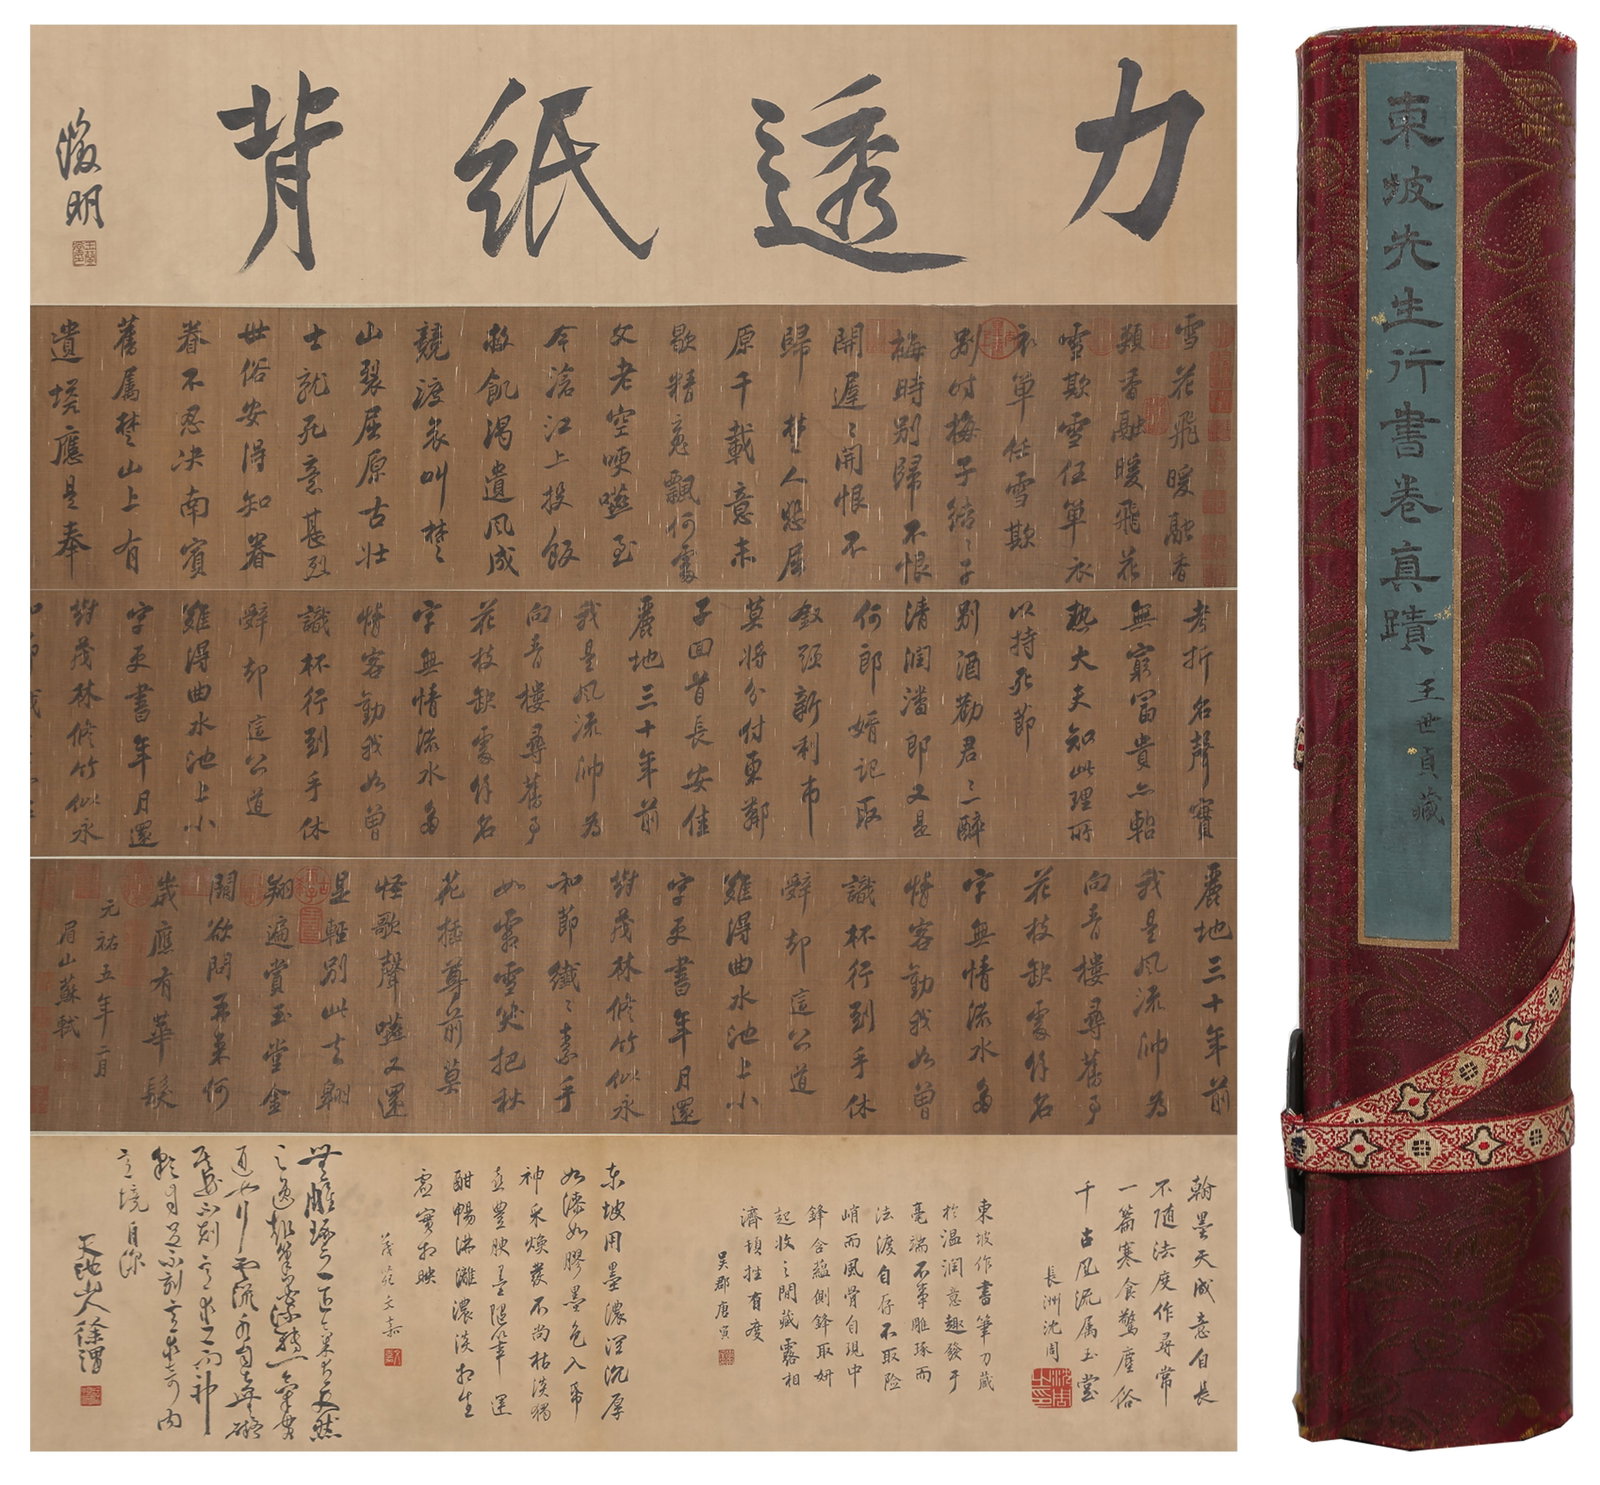 力透紙背
徵明
雪花飛暖融香
頰香融暖飛花
雪欺雪任單衣
衣單任雪欺
別時梅子結結子
梅時別歸不恨
開遲遲開恨不
歸 楚人悲屈
原千載意未
歇精魂飄何處
父老空哽咽至
今滄江上投飯
救飢渴遺風成
競渡哀叫楚
山裂屈原古壯
士就死意甚烈
世俗安得知眷
眷不忍決南賓
舊屬楚山上有
遺塔應是奉
考折名聲實
無窮富貴亦輕
熱大夫知此理所
以持死節
別酒勸君君一醉
清潤潘郎又是
何郎壻記取
釵頭新利市
莫將分付東鄰
子回首長安佳
麗地三十年前
我是風流帥為
向青樓尋舊事
花枝缺處餘名
字無情流水多
情客勸我如曾
識杯行到手休
辭却這公道
難得曲水池上小
字更書年月還
對茂林修竹似永
和節纖
麗地三十年前
我是風流帥為
向青樓尋舊事
花枝缺處餘名
字無情流水多
情客勸我如曾
識杯行到手休
辭却這公道
難得曲水池上小
字更書年月還
對茂林修竹似永
和節纖纖素手
如霜雪笑把秋
花插尊前莫
怪歌聲咽又還
是輕別此去翱
翔遍賞玉堂金
闕欲問再來何
歲應有華髮
元祐五年二月
眉山蘇軾
翰墨天成意自長
不隨法度作尋常
一篇寒食驚塵俗
千古風流屬玉堂
長洲沈周
東坡作書筆力藏
於溫潤意趣發于
毫端不事雕琢而
法度自存不取險
峭而風骨自現中
鋒含蘊側鋒取妍
起收之間藏露相
濟頓挫有度
吳郡唐寅
東坡用墨濃潤沉厚
如漆如膠墨色入帛
神采煥發不尚枯淡獨
喜豐腴墨隨筆運
酣暢淋漓濃淡相生
虛實相映
茂苑文嘉
天池山人徐渭
東坡先生行書卷真蹟
王世貞藏